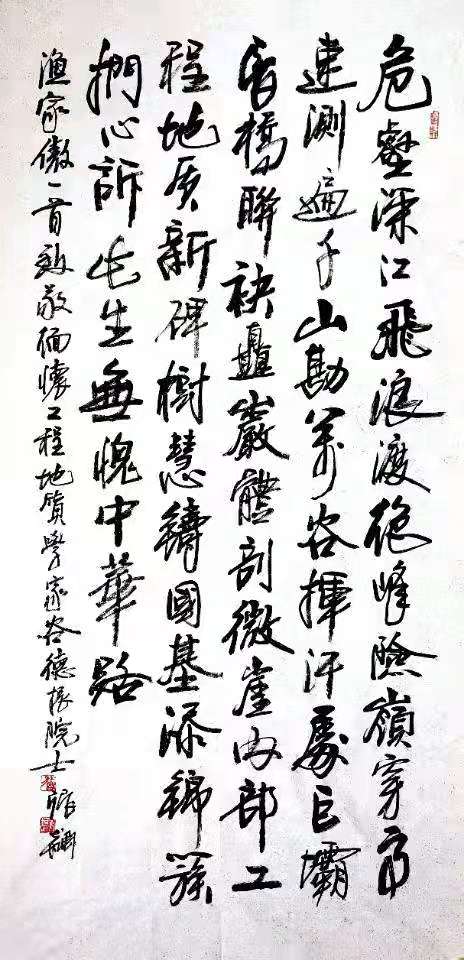 危壑深江飛浪渡絶峰險嶺穿
測遍千山勘萬谷揮汗處巨壩
高橋聯袂矗巖體剖微崖内部工
程地质新碑樹慧鑄國基添錦簇
捫心訴此生無愧中華路
渔家傲一首致敬缅懷工程地質學家谷德振院士